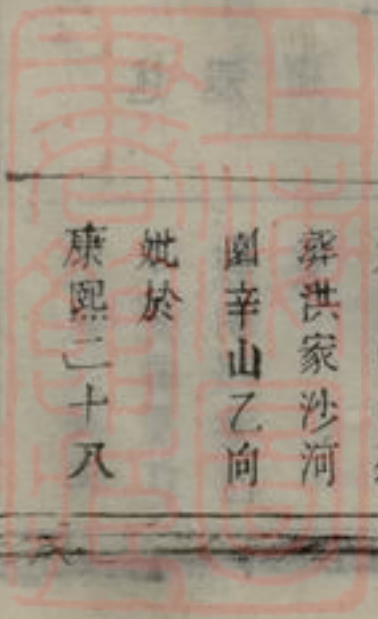 葬洪家沙河
圍辛山乙向
妣於
康熙二十八